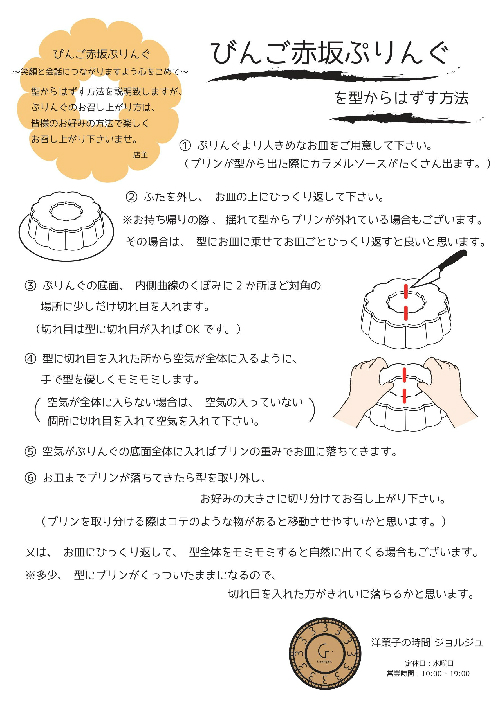 びんご赤坂ぷりんぐ
〜笑顔と会話につながりますよう心をこめて〜
型からはずす方法を説明致しますが、
ぷりんぐのお召し上がり方は、
皆様のお好みの方法で楽しく
お召し上がり下さいませ。
店主
びんご赤坂ぷりんぐ
を型からはずす方法
① ぷりんぐより大きめなお皿をご用意して下さい。
(プリンが型から出た際にカラメルソースがたくさん出ます。)
② ふたを外し、 お皿の上にひっくり返して下さい。
※お持ち帰りの際 、 揺れて型からプリンが外れている場合もございます。
その場合は、 型にお皿に乗せてお皿ごとひっくり返すと良いと思います。
③ ぷりんぐの底面、 内側曲線のくぼみに2か所ほど対角の
場所に少しだけ切れ目を入れます。
(切れ目は型に切れ目が入ればOKです。)
④ 型に切れ目を入れた所から空気が全体に入るように、
手で型を優しくモミモミします。
( 空気が全体に入らない場合は、 空気の入っていない
個所に切れ目を入れて空気を入れて下さい。 )
⑤ 空気がぷりんぐの底面全体に入ればプリンの重みでお皿に落ちてきます。
⑥ お皿までプリンが落ちてきたら型を取り外し、
お好みの大きさに切り分けてお召し上がり下さい。
(プリンを取り分ける際はコテのような物があると移動させやすいかと思います。)
又は、 お皿にひっくり返して、 型全体をモミモミすると自然に出てくる場合もございます。
※多少、 型にプリンがくっついたままになるので、
切れ目を入れた方がきれいに落ちるかと思います。
洋菓子の時間 ジョルジュ
定休日：水曜日
営業時間 10:00 - 19:00